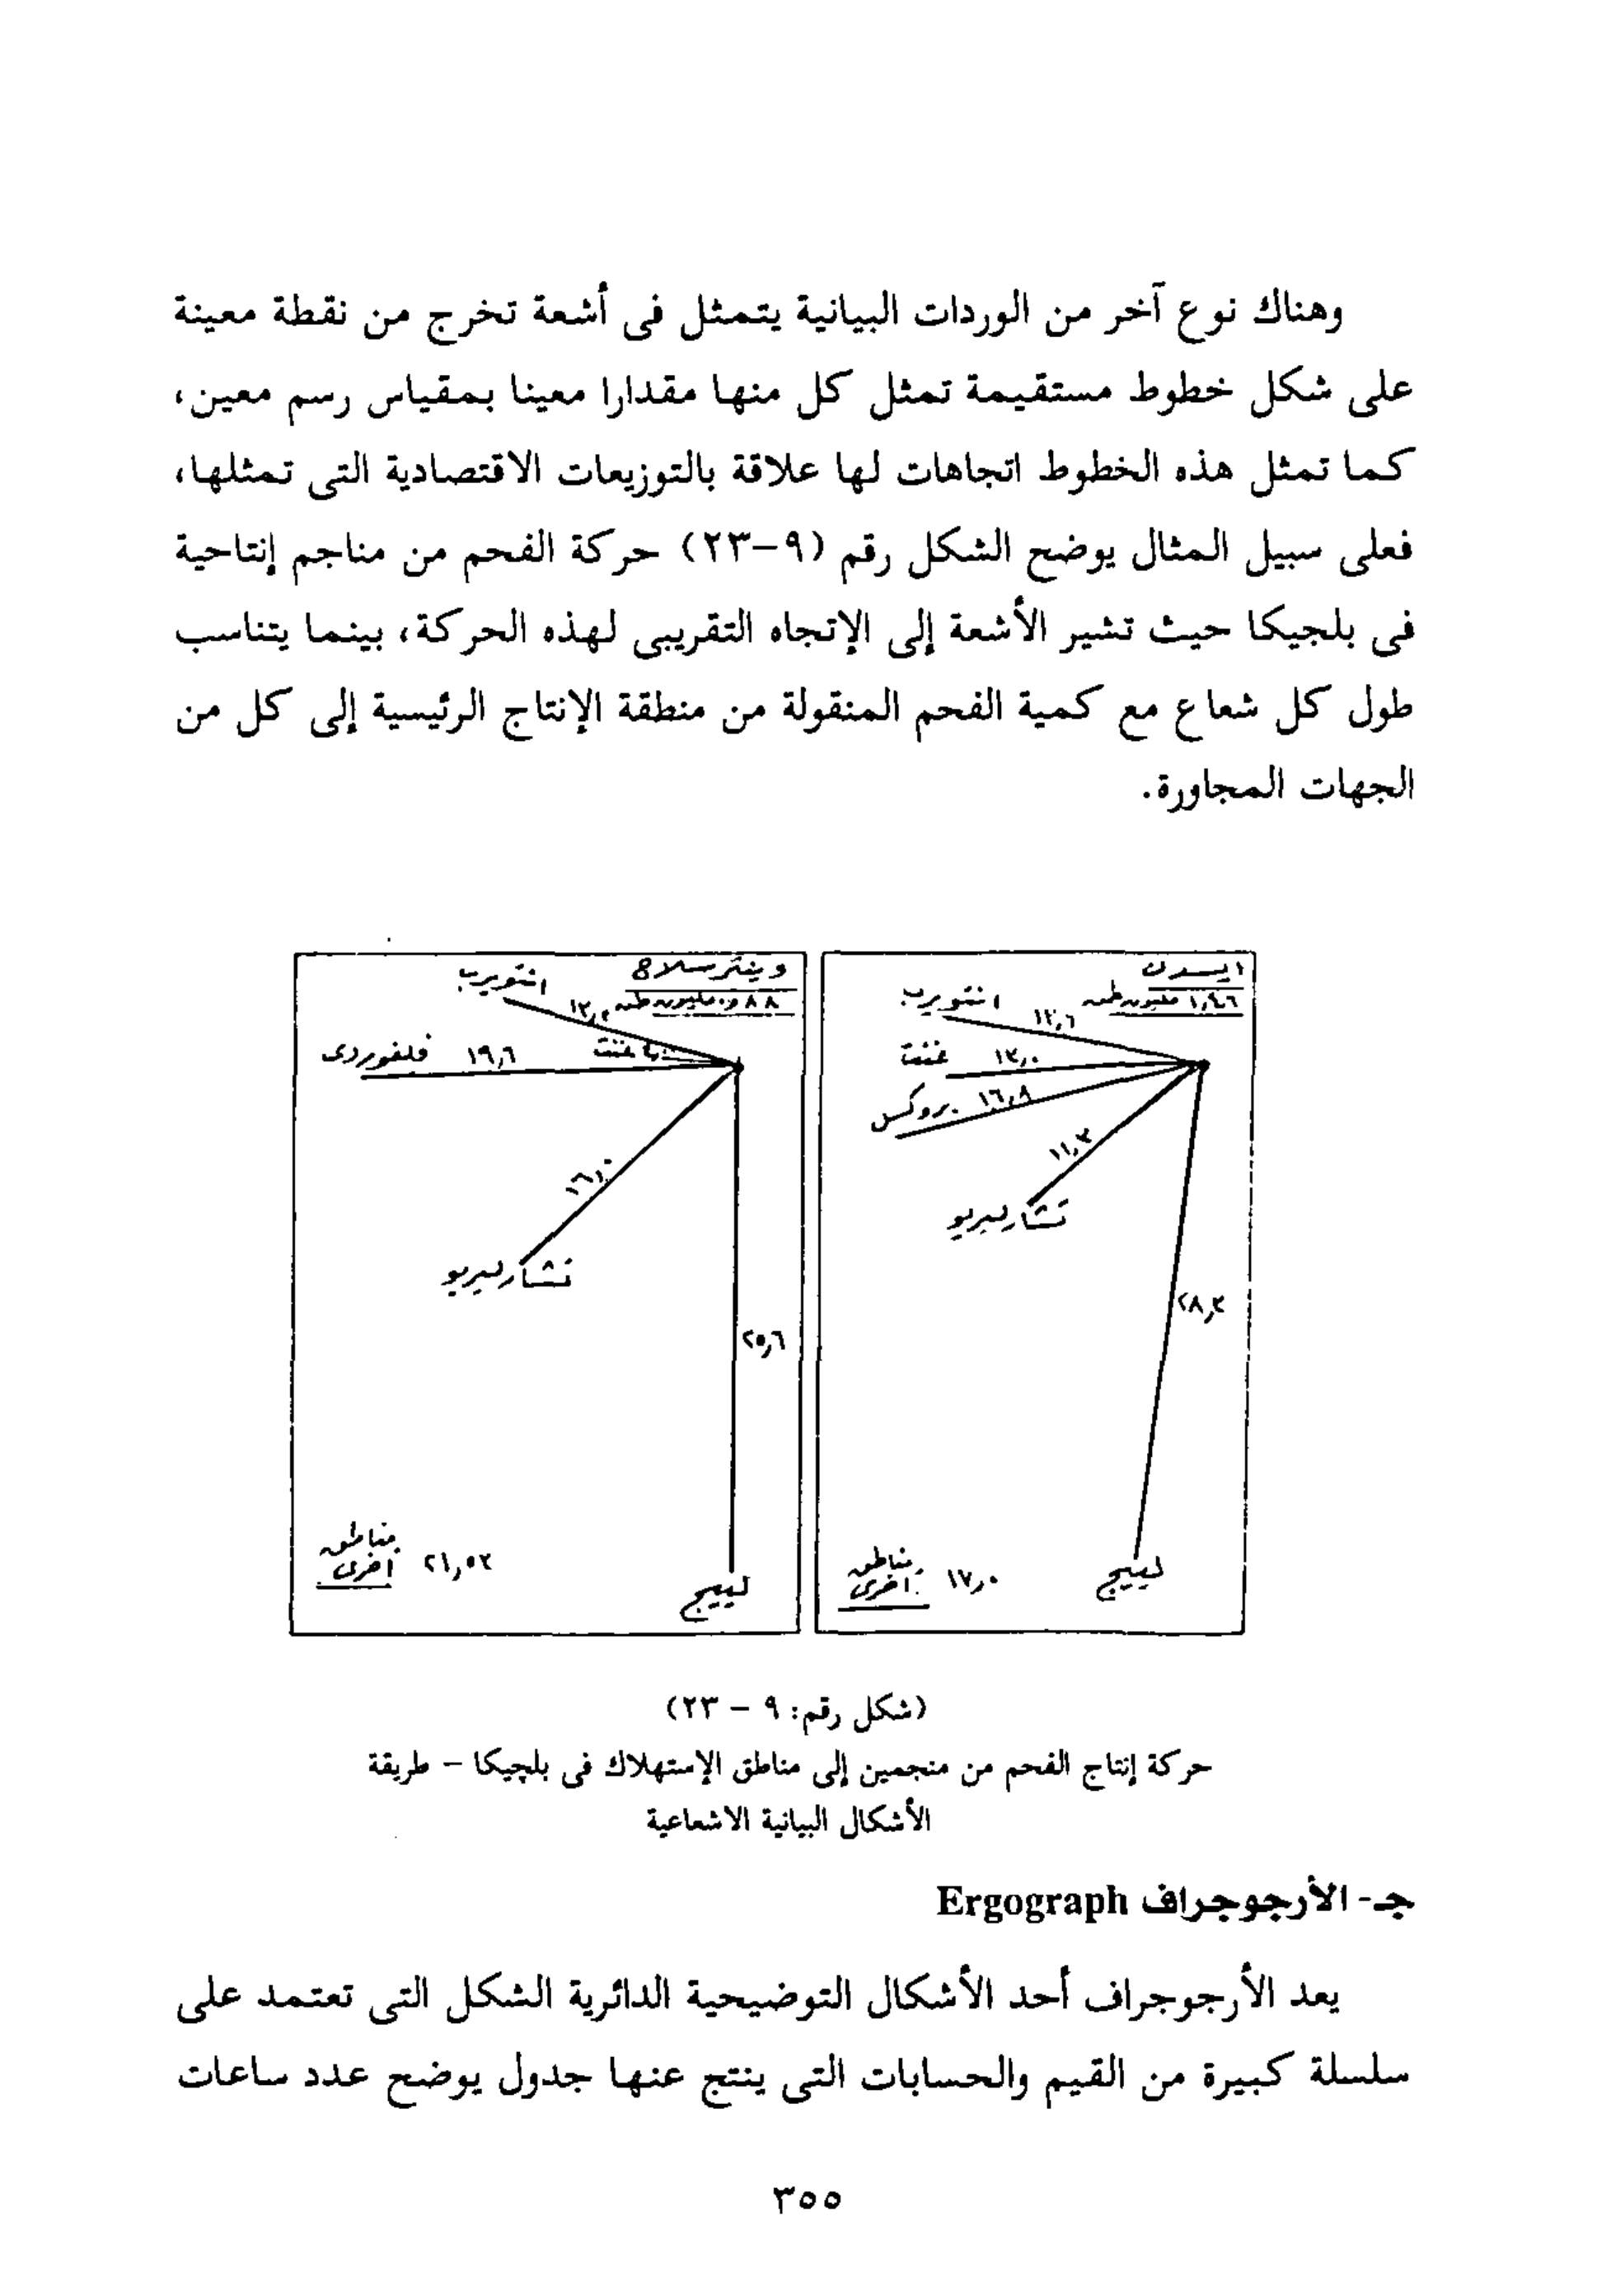 وهناك نوع آخر من الوردات البيانية يتمثل فى أشعة تخرج من نقطة معينة
على شكل خطوط مستقيمة تمثل كل منها مقدارا معينا بمقياس رسم معين،
كما تمثل هذه الخطوط اتجاهات لها علاقة بالتوزيعات الاقتصادية التى تمثلها،
فعلى سبيل المثال يوضح الشكل رقم (٩-٢٣) حركة الفحم من مناجم إنتاحية
فى بلجيكا حيث تشير الأشعة إلى الإتجاه التقريبى لهذه الحركة، بينما يتناسب
طول كل شعاع مع كمية الفحم المنقولة من منطقة الإنتاج الرئيسية إلى كل من
الجهات المجاورة.
ايسدن
١,٦٦ مليون طن
انتويرب
١٢,٦
غنت
١٢,٠
بروكسل
١٦,٨
١١,٣
تشارليريو
٢٨,٢
لييج
مناطق
أخرى
١٧,٠
وينترسلاج
مليون طن
انتويرب
غنت
فلفوردى
١٩,٦
١٦,٠
تشارليريو
٢٥,٦
لييج
مناطق
أخرى
٢١,٥٢
(شكل رقم: ٩ - ٢٣)
حركة إنتاج الفحم من منجمين إلى مناطق الإستهلاك فى بلچيكا - طريقة
الأشكال البيانية الاشعاعية
جـ- الأرجوجراف Ergograph
يعد الأرجوجراف أحد الأشكال التوضيحية الدائرية الشكل التى تعتمد على
سلسلة كبيرة من القيم والحسابات التى ينتج عنها جدول يوضح عدد ساعات
٣٥٥